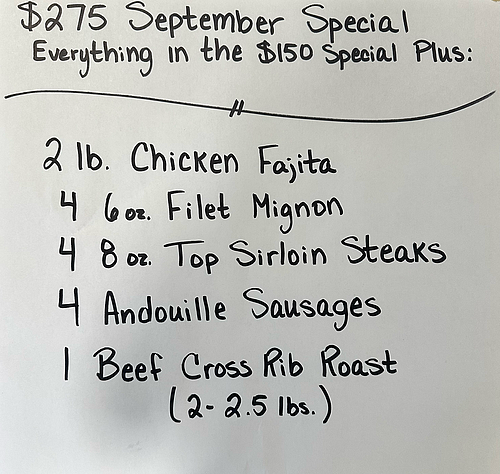 $275 September Special
Everything in the $150 Special Plus:
2 lb. Chicken Fajita
4 6 oz. Filet Mignon
4 8 oz. Top Sirloin Steaks
4 Andouille Sausages
1 Beef Cross Rib Roast
(2-2.5 lbs.)